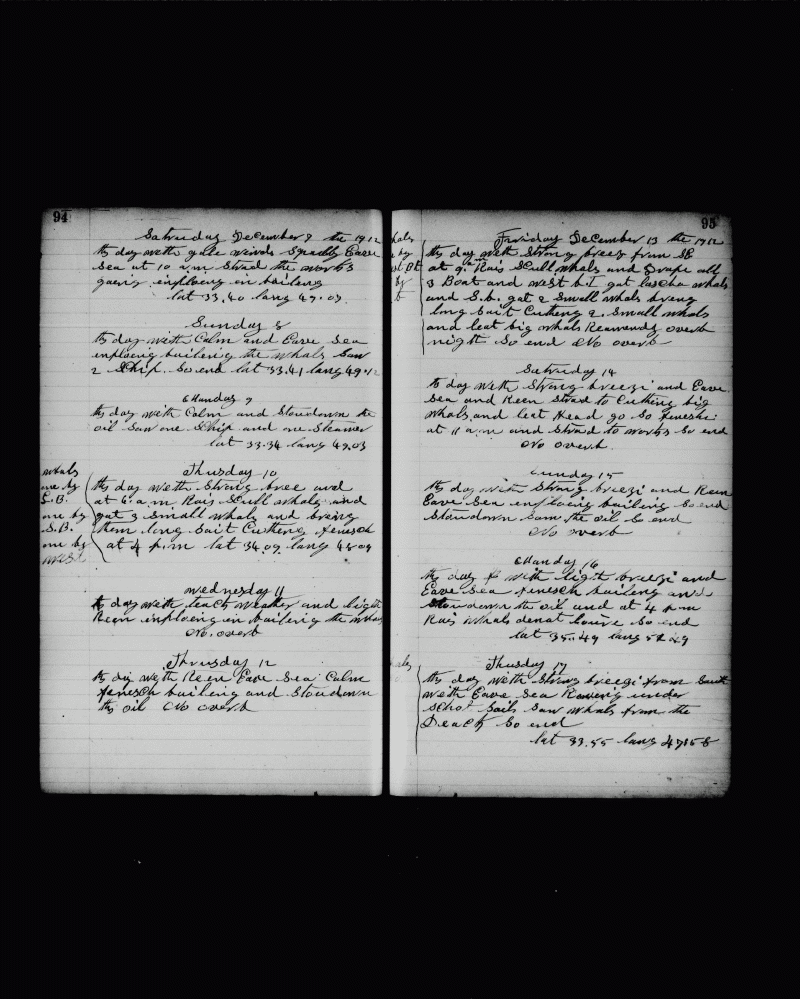 94
Saturday December 7 the 1912
ths day with gale winds Squally Eave
Sea at 10 a.m Strad the works
goeing inploeing in boiling
lat 33.40 lang 49.03
Sunday 8
ths day with Calm and Eave Sea
inploeing boileing the whals Saw
2 Ship. So end lat 33.41 lang 49.12
Manday 9
ths day with Calm and Stoudown the
oil Saw one Ship and one Steamer
lat 33.34 lang 49.03
whals
one by
L.B.
one by
S.B.
one by
West
Thusday 10
ths day with Strong bree and
at 6 a.m Rais Scull whals and
gat 3 Small whals and bring
them long Sait Cutheng fenesch
at 4 p.m lat 34.09 lang 48.09
wednesday 11
ths day with teack weather and light
Reen inploeng in boileng the whals
No. overb
Thursday 12
ths day with Reen Eave Sea Calm
fenesch boileng and Stoudown
ths oil No overb
95
Friday December 13 the 1912
ths day with Strong breez from SE
at 9 am Rais Scull whals and Drape all
3 Boat and west b.I gat lascha whals
and S.b. gat 2 Small whals breng
long Sait Cutheng 2 Small whals
and leat big whals overb
night So end No overb
Saturday 14
ths day with Strong breezi and Eave
Sea and Reen Strad to Cutheng big
whals and leet Head go So feneshi
at 11 a.m and Strad to works So end
No overb.
Sunday 15
ths day with Strong breezi and Reen
Eave Sea inploeing boileing So end
Stoudown Sam the oil So end
No overb
Manday 16
ths day with ligt breezi and
Eave Sea fenesch boileng and
Stoudown the oil and at 4 p.m
Rais whals denat So end
lat 35.49 lang 52.49
Thusday 17
ths day with Strong breezi from South
with Eave Sea under
Sails Saw whals from the
Deack So end
lat 33.55 lang 47.56